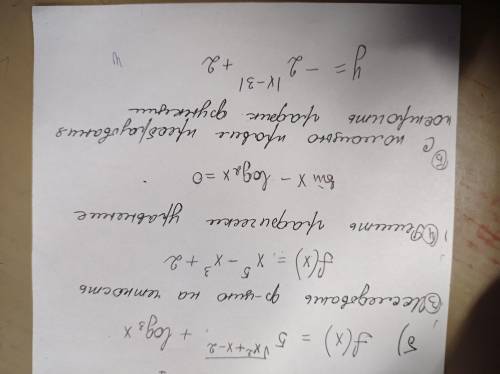 б) f(x) = 5^√(x²+x-2) + log₃ x
③ Исследовать ф-цию на четность
f(x) = x⁵ - x³ + 2
④ Решить графически уравнение
sin x - log₂ x = 0
⑤ С помощью правил преобразования построить график функции
y = -2^|x-3| + 2